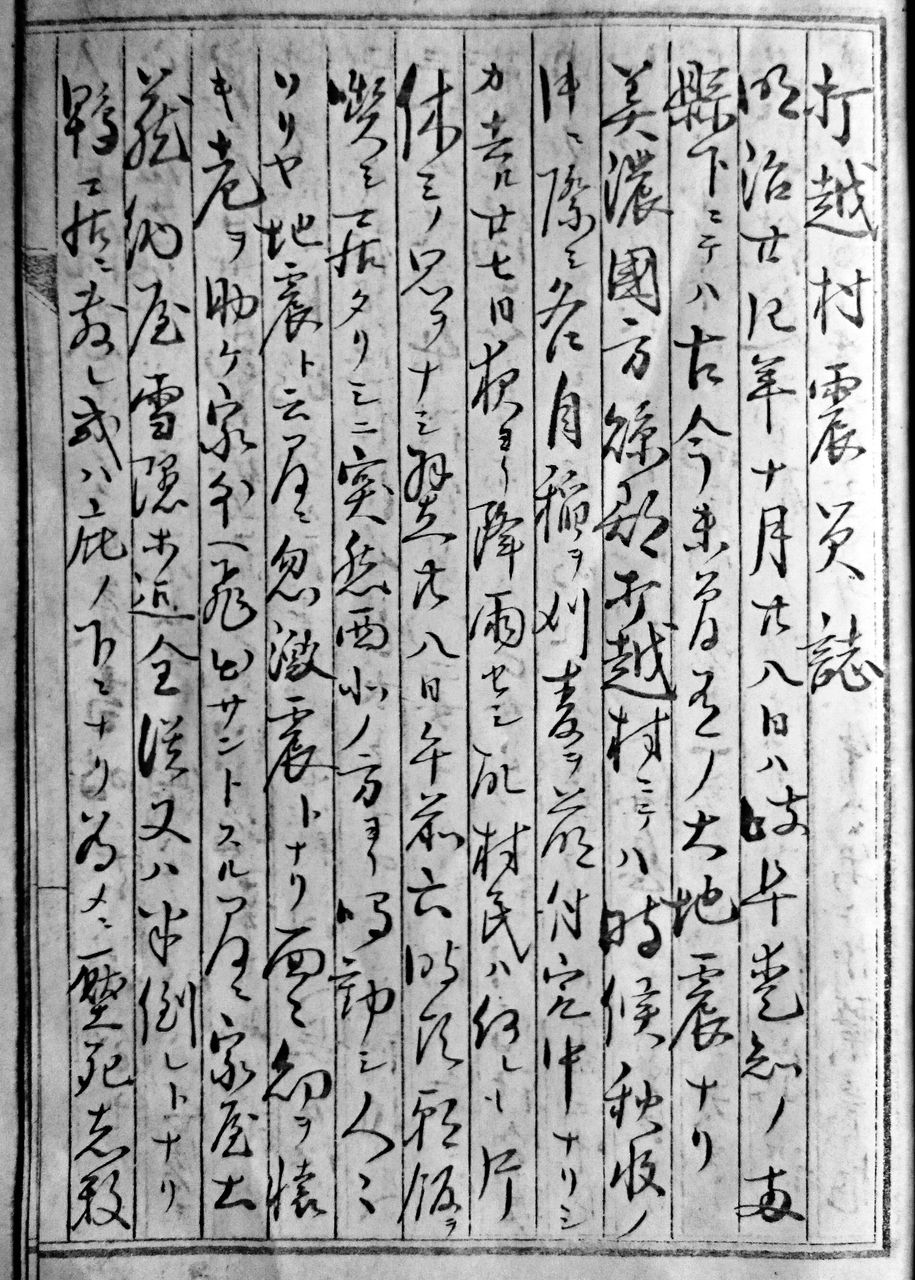 打越村震災誌
明治廿四年十月廿八日ハ岐阜愛知ノ両
縣下ニテハ古今未曽有ノ大地震ナリ
美濃國方縣郡打越村ニテハ時候秋収ノ
際ミ各自稲ヲ刈麦ヲ蒔付究中ナリシ
カ去ル廿七日夜ヨリ降雨セシ故村民ハ何レモ片
休ミノ思ヲナシ翌廿八日午前六時頃朝飯ヲ
喫シ居タリシニ突然西北ノ方ヨリ鳴動シ人々
ソリヤ地震ト云フ間ニ忽激震トナリ面々幼ヲ懐
キ老ヲ助ケ家外ヘ飛出サントスル間ニ家屋土
蔵納屋雪隠等過全潰又ハ半倒レトナリ
鴨居ニ敷レ或ハ庇ノ下ニナリ為メニ壓死者数